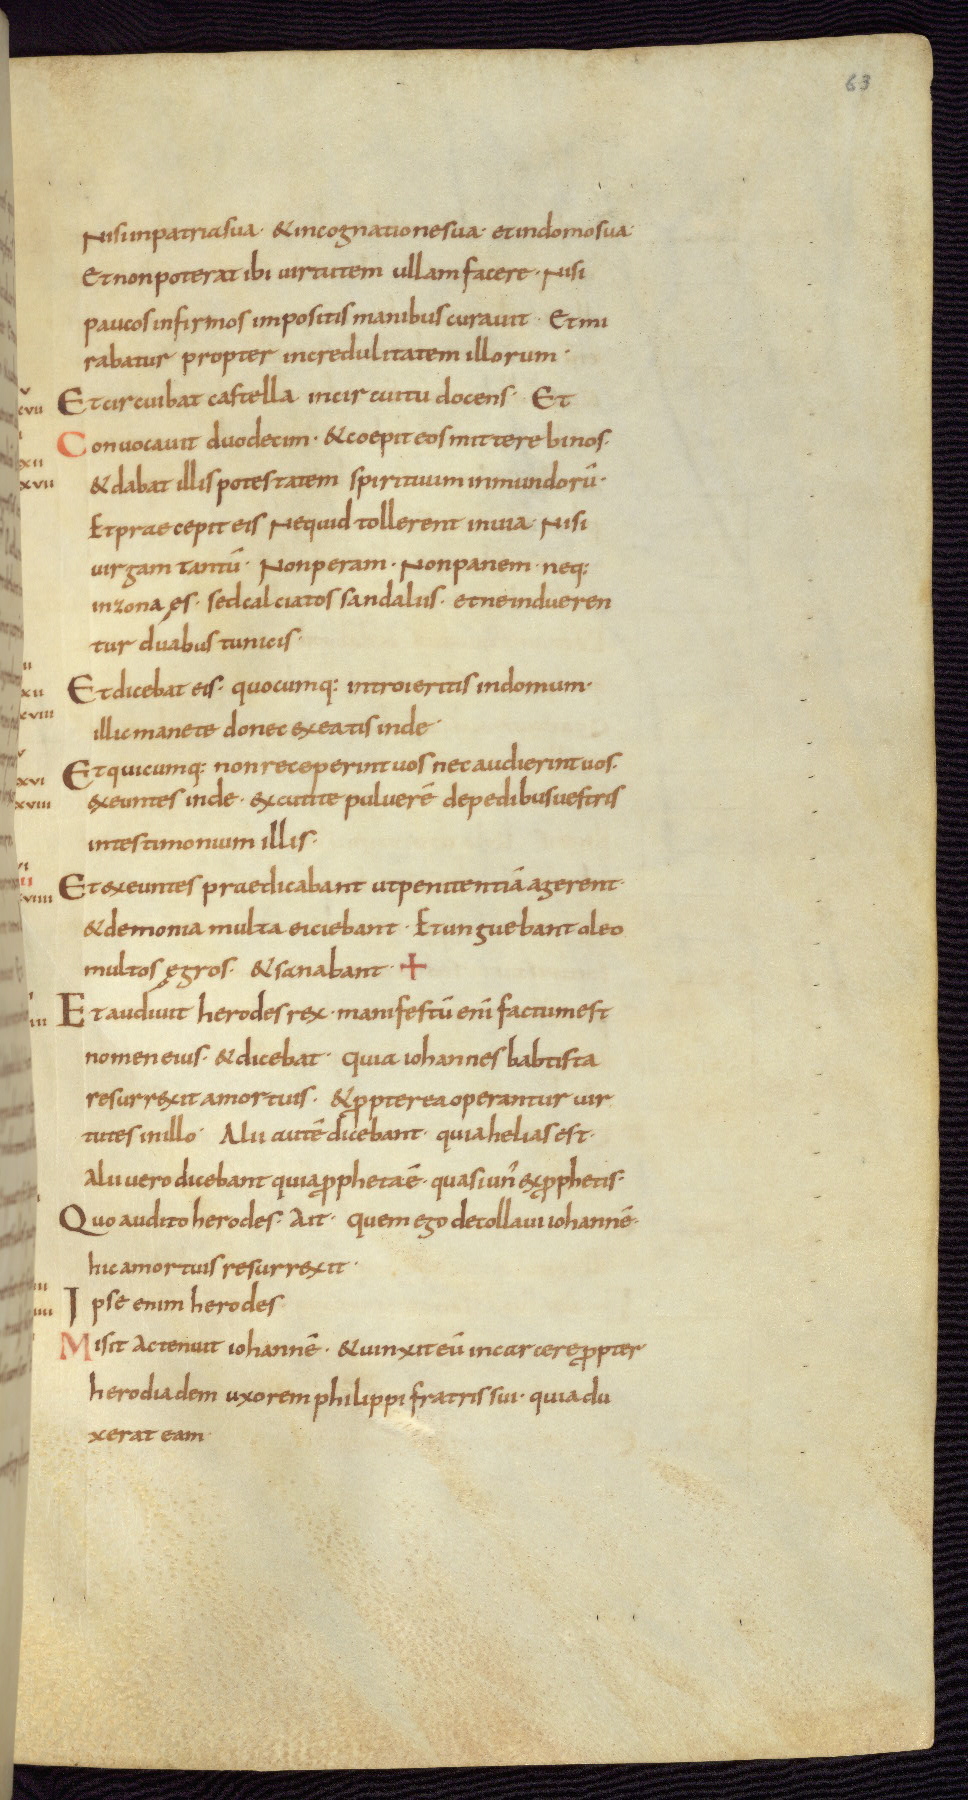 63
Nisi in patria sua · & in cognatione sua · et in domo sua ·
Et non poterat ibi uirtutem ullam facere · Nisi
paucos infirmos impositis manibus curauit · Et mi
rabatur propter incredulitatem illorum ·
Et circuibat castella in circuitu docens · Et
Conuocauit duodecim · & coepit eos mittere binos ·
& dabat illis potestatem spirituum inmundorū ·
Et praecepit eis Ne quid tollerent in uia · Nisi
uirgam tantū · Non peram · Non panem · neq:
in zona ęs · sed calciatos sandaliis · et ne indueren
tur duabus tunicis ·
Et dicebat eis · quocumq: introieritis in domum ·
illic manete donec exeatis inde ·
Et quicumq: non receperint uos nec audierint uos ·
exeuntes inde · excutite puluerē de pedibus uestris
in testimonium illis ·
Et exeuntes praedicabant ut penitentiā agerent ·
& demonia multa eiciebant · Et unguebant oleo
multos ęgros · & sanabant · +
Et audiuit herodes rex · manifestū enī factum est
nomen eius · & dicebat · quia iohannes babtista
resurrexit a mortuis · & ꝓpterea operantur uir
tutes in illo · Alii autē dicebant · quia helias est ·
Alii uero dicebant quia ꝓpheta ē · quasi un' ex ꝓphetis ·
Quo audito herodes · Ait · quem ego decollaui iohannē ·
hic a mortuis resurrexit ·
Ipse enim herodes
Misit Ac tenuit iohannē · & uinxit eū in carcere ꝓpter
herodiadem uxorem philippi fratris sui · quia du
xerat eam ·